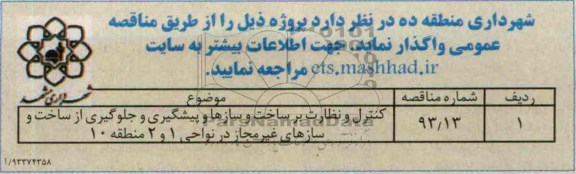 شهرداری منطقه ده در نظر دارد پروژه ذیل را از طریق مناقصه
عمومی واگذار نماید. جهت اطلاعات بیشتر به سایت
cts.mashhad.ir مراجعه نمایید.
شهرداری مشهد
ردیف شماره مناقصه موضوع
۱ ۹۳/۱۳ کنترل و نظارت بر ساخت و سازها و پیشگیری و جلوگیری از ساخت و
سازهای غیرمجاز در نواحی ۱ و ۲ منطقه ۱۰
ParsNamadData
۱/۹۳۳۷۴۳۵۸